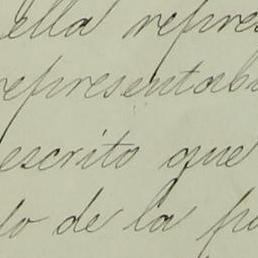 ella repres
representab
escrito que
to de la po